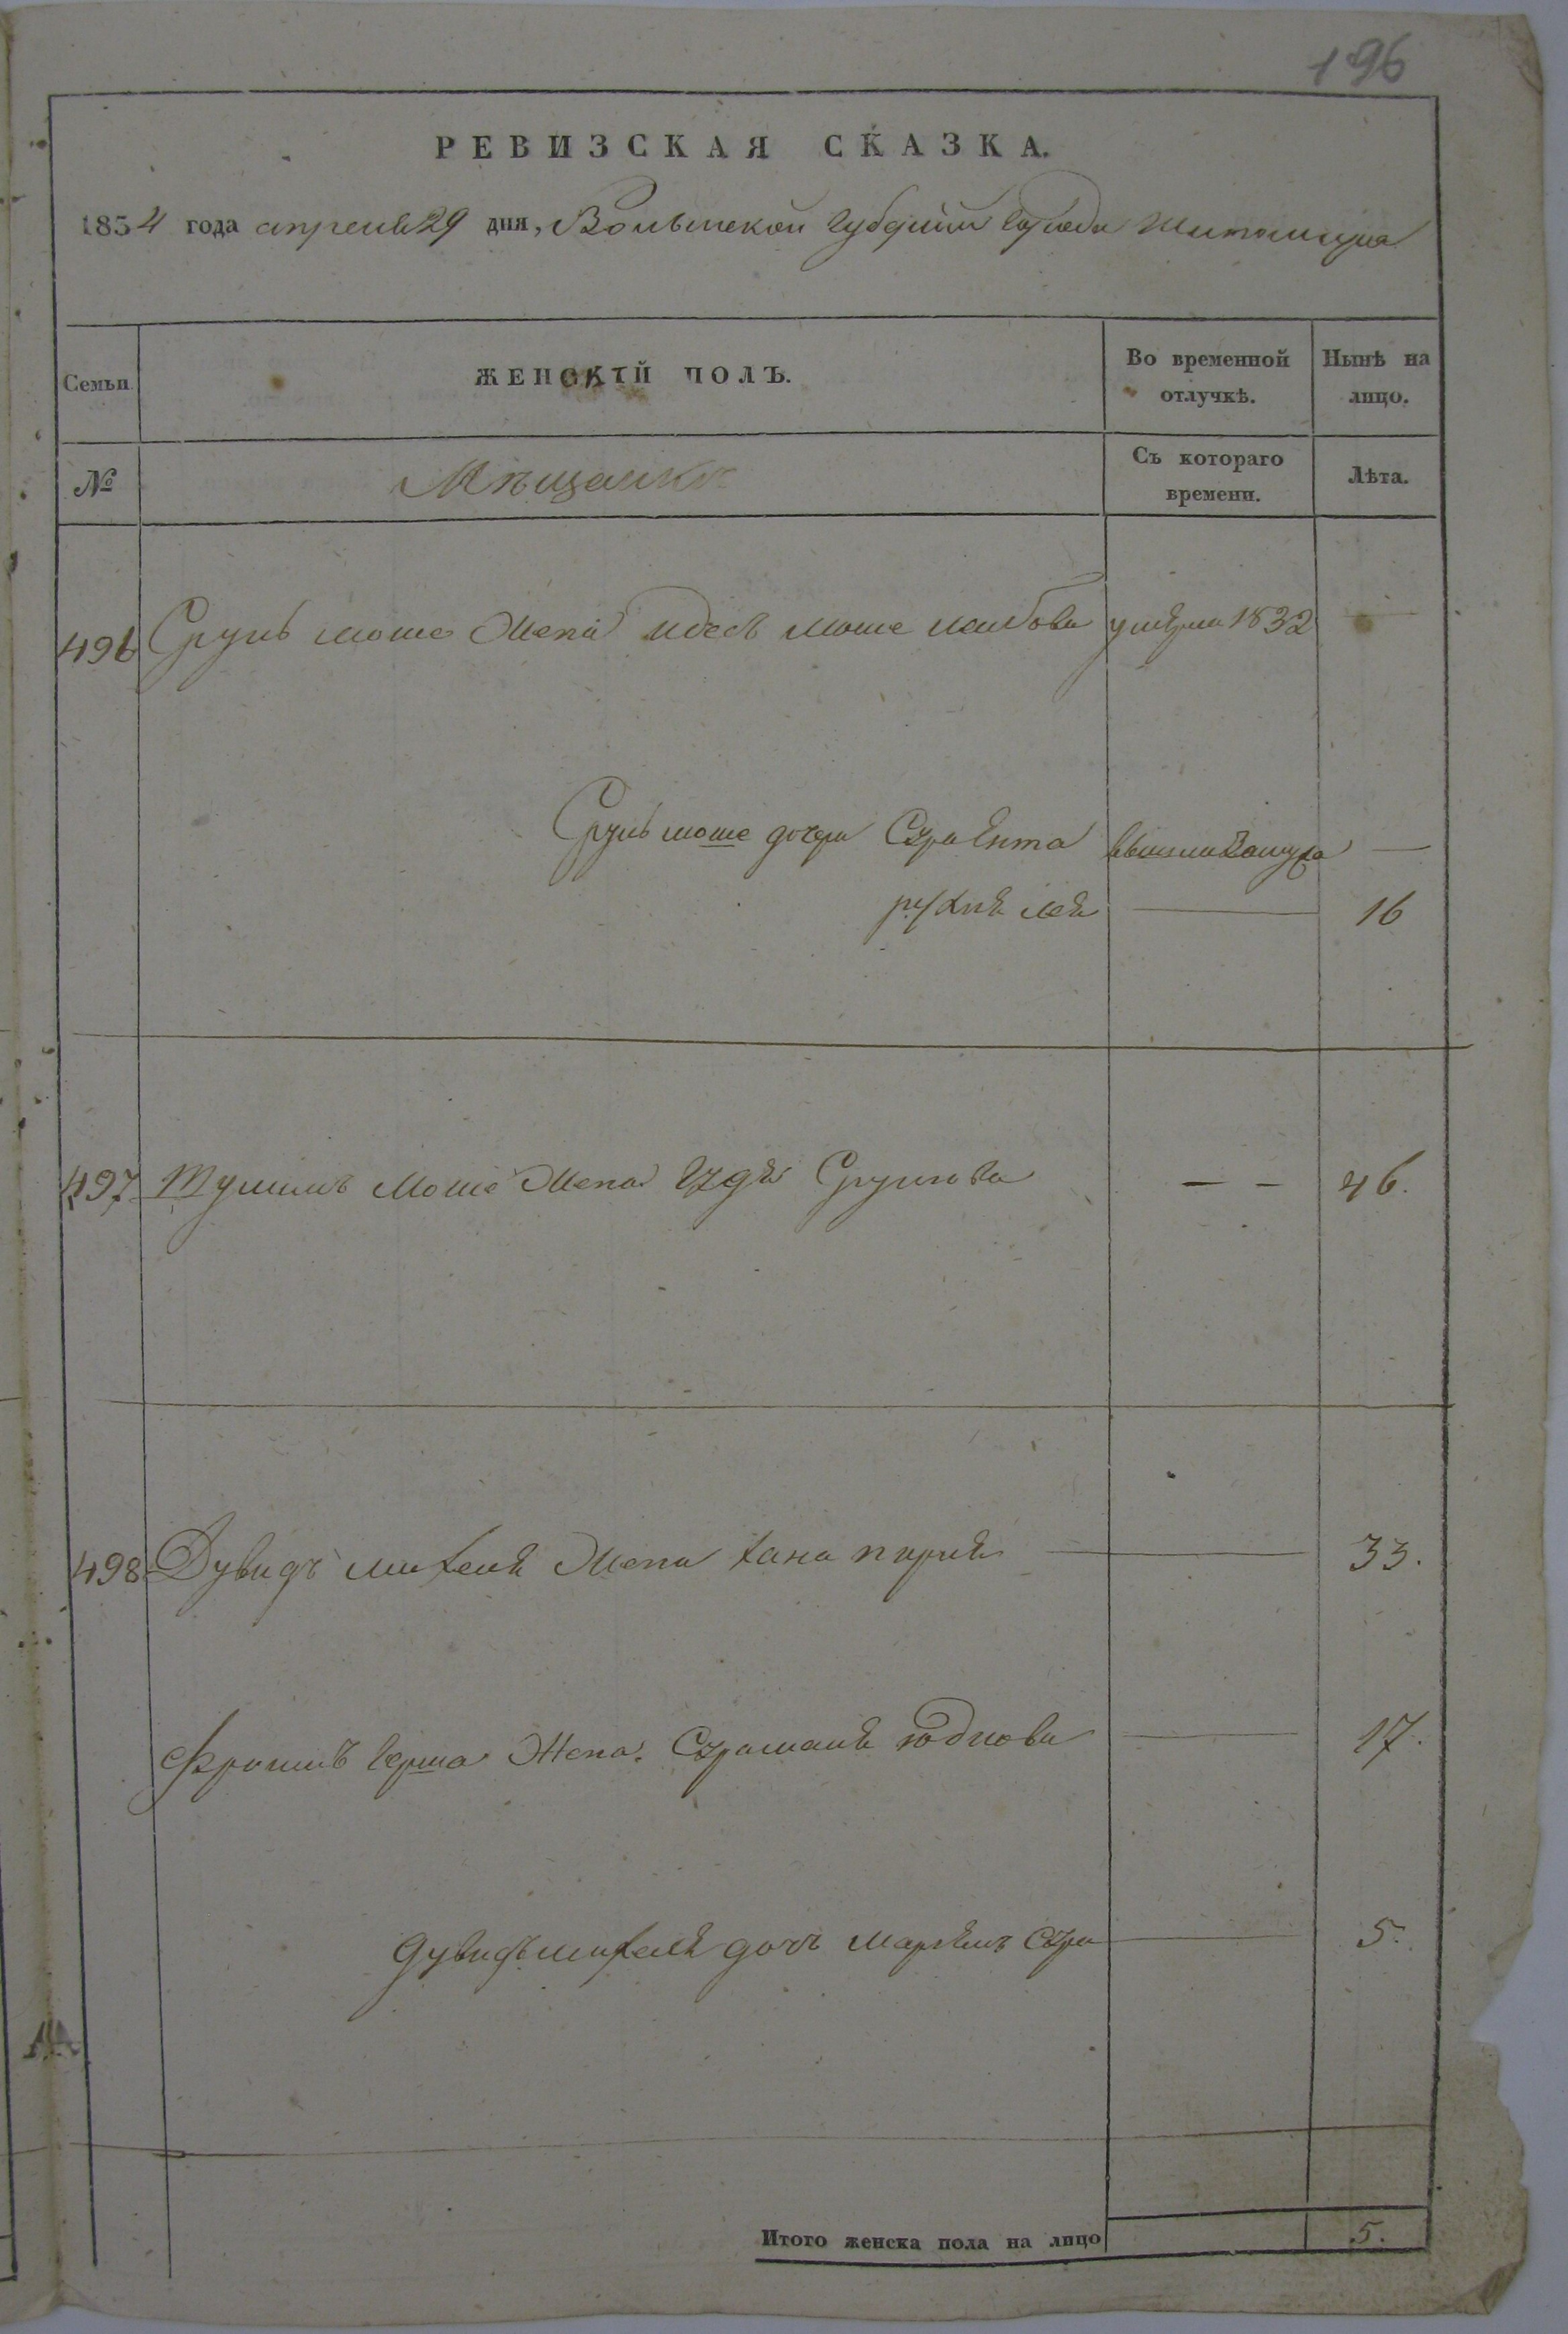 196
РЕВИЗСКАЯ СКАЗКА.
1854 года апреля 29 дня, Волынской Губернии города Житомира
Семьи ЖЕНСКІЙ ПОЛЪ. Во временной отлучкѣ. Нынѣ на лицо.
№ Мѣщанки Съ котораго времени. Лѣта.
496 Сруль моше Жена моше лейбова умерла 1832 —
Сруль моше дочери Сура Ента вышла Замужъ —
рухля лея — 16
497 моше Жена Срулова — - 46.
498 Дувидъ михеля Жена хана перля — 33.
Фроимъ герша Жена. — 17.
дувидъ михеля дочь марьемъ Сура — 5.
Итого женска пола на лицо 5.